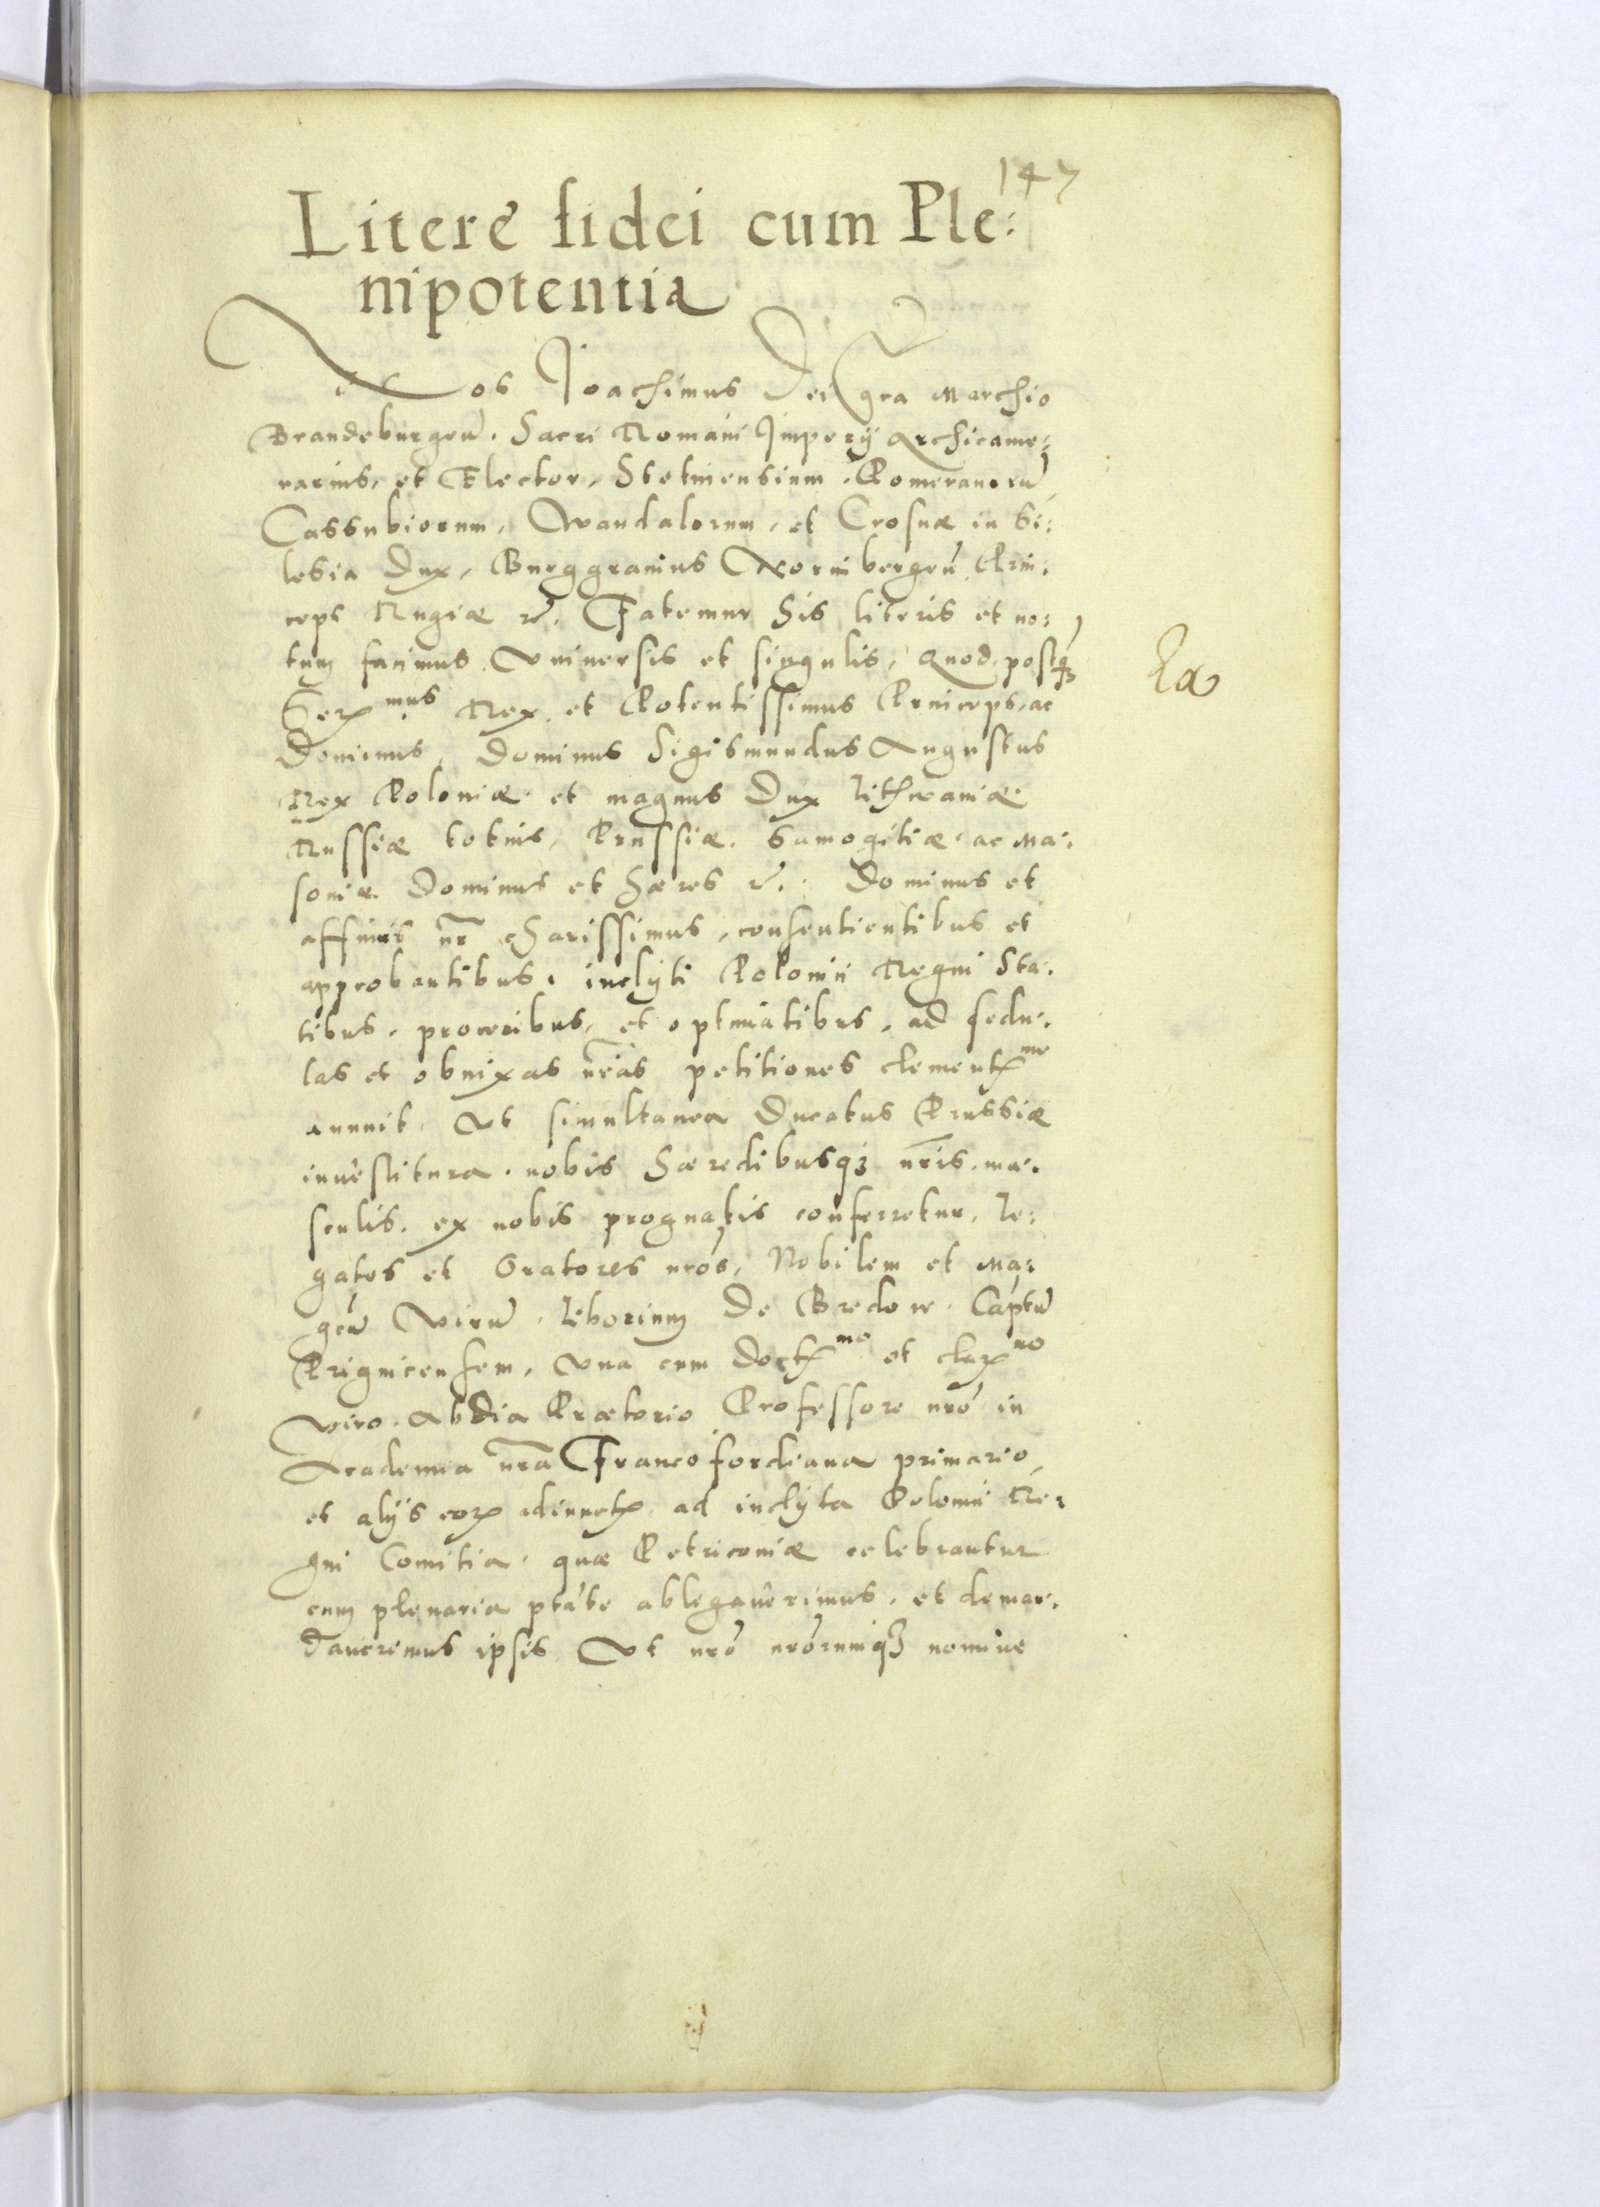 147
Litere fidei cum Ple:
nipotentia
Nos Joachimus Dei gra Marchio
Brandeburgeñ. Sacri Romani Imperij Archicame:
rarius, et Elector, Stetinensium, Pomeranorũ
Cassubiorum, Wandalorum, et Crosnæ in Si:
lesia Dux, Burggravius Nornibergeñ Prin:
ceps Rugiæ etc. Fatemur his literis et no:
tum facimus Vniversis et singulis, Quod postq̃
Ser.mus Rex et Potentissimus Princeps, ac
Dominus, Dominus Sigismundus Augustus
Rex Poloniæ et magnus Dux Lithwaniæ
Russiæ totius, Prussiæ. Samogitiæ. ac Ma:
soviæ Dominus et hæres etc. Dominus et
affinis nr̃ charissimus, consentientibus et
approbantibus, inclyti Polonii Regni Sta:
tibus, proceribus, et optimatibus, ad sedu:
las et obnixas nr̃as petitiones clement.me
annuit. Vt simultanea Ducatus Prussiæ
investitura. nobis hæredibusq3 nr̃is. ma:
sculis. ex nobis prognatis conferretur, Le:
gatos et Oratores nr̃os, Nobilem et Ma:
gcũ Virũ. Leborium De Bredow. Captũ
Prignicensem, Vna cum Doct.mo et Clar.mo
Viro. Abdia Prætorio Professore nr̃o in
Academia nr̃a Francofordiana primario
et alijs eor. adiunct. ad inclyta Polonii Re:
gni Comitia. quæ Petricoviæ celebrantur
cum plenaria ptãte ablegaverimus, et deman:
daverimus ipsis Vt nr̃o nr̃orumq3 nomine